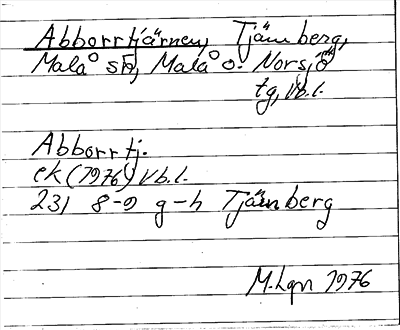 Abborrtjärnen, Tjärnberg,
Malå sn, Malå o. Norsjö
tg, Vb.l.
Abborrtj.
ek (1976) Vb.l.
23J 8-9 g-h Tjärnberg
M.Lgn 1976